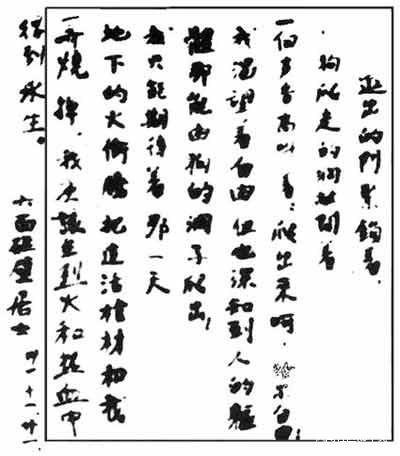 進出的門緊鎖着.
狗爬走的洞敞開着
一個声音高叫着：爬出来呵，給尔自由!
我渴望着自由但也深知到人的軀
體那能由狗的洞子爬出!
我只能期待着那一天
地下的火衝騰把這活棺材和我
一齊燒掉，我应該在烈火和热血中
得到永生。
六面碰壁居士 卅一·十一·廿一